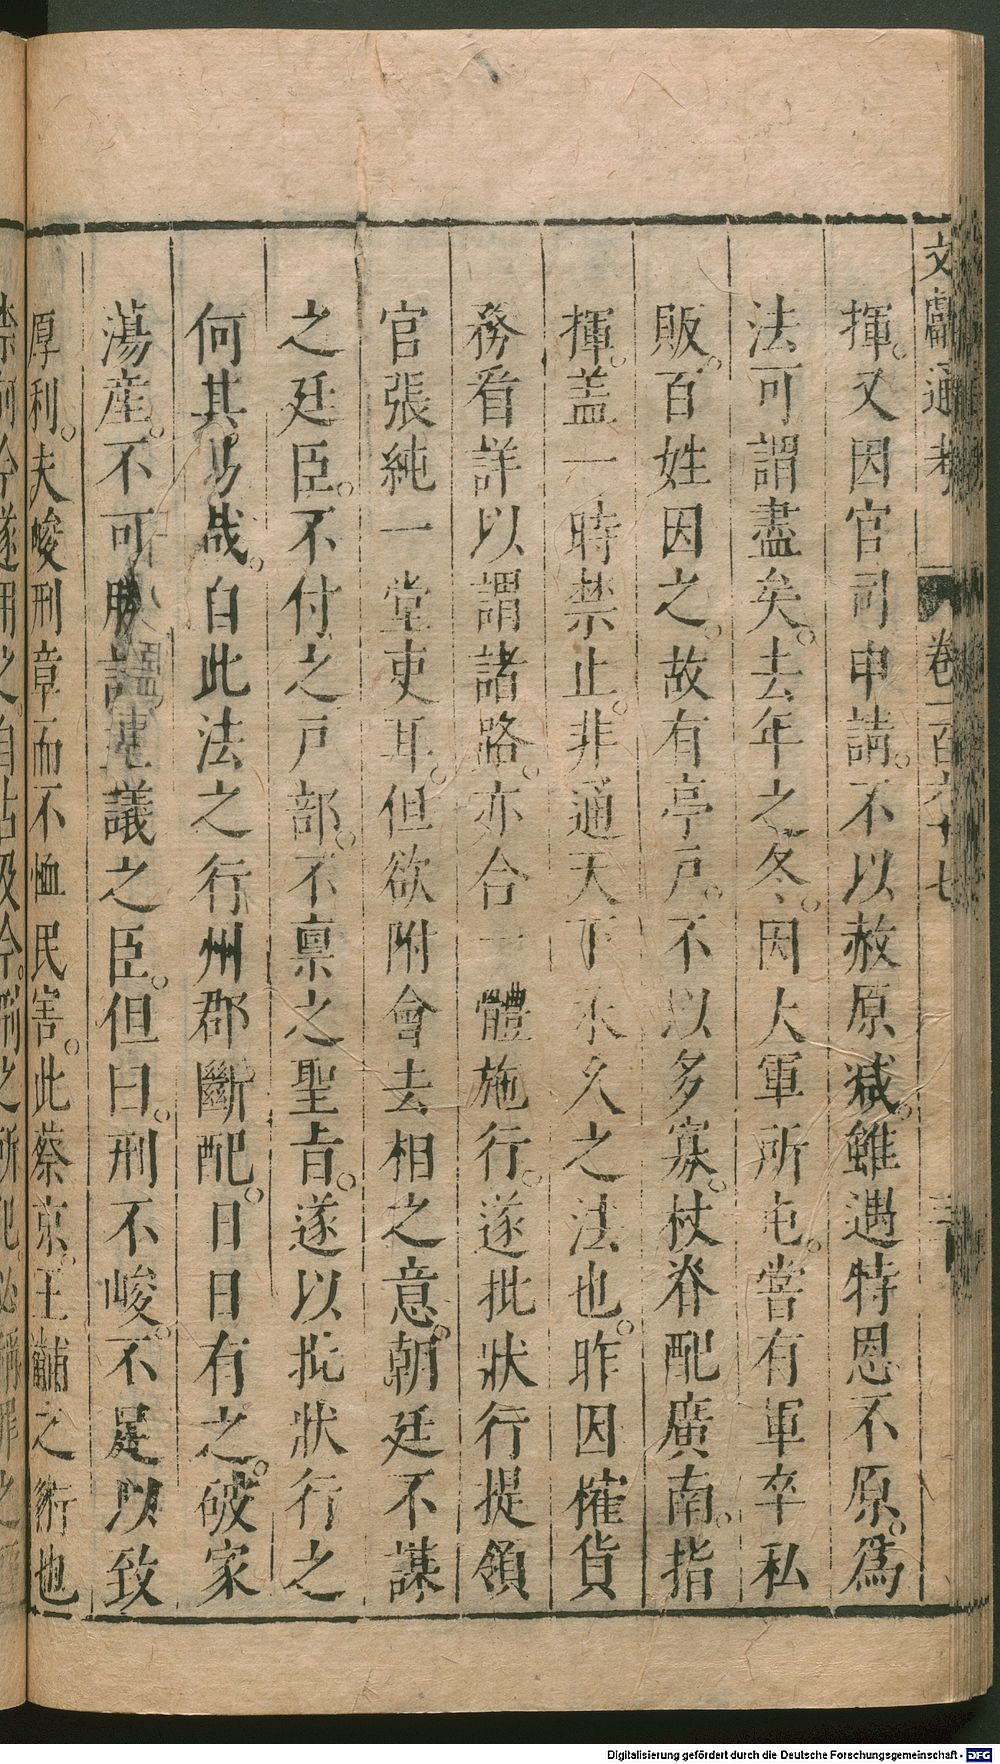 文獻通考 卷一百六十七
揮。又因官司申請。不以赦原减。雖遇特恩不原。爲
法可謂盡矣。去年之冬。因大軍所屯。嘗有軍卒私
販。百姓因之。故有亭戸。不以多寡。杖脊配廣南。指
揮。蓋一時禁止。非通天下永久之法也。昨因榷貨
務看詳以謂諸路。亦合一體施行。遂批狀行提領
官張純一堂吏耳。但欲附會去相之意。朝廷不謀
之廷臣。不付之戸部。不禀之聖旨。遂以批狀行之
何其易哉。自此法之行州郡斷配。日日有之。破家
蕩産。不可勝計。建議之臣。但曰。刑不峻。不足以致
厚利。夫峻刑章而不恤民害。此蔡京。王黼之術也
Digitalisierung gefördert durch die Deutsche Forschungsgemeinschaft - DFG